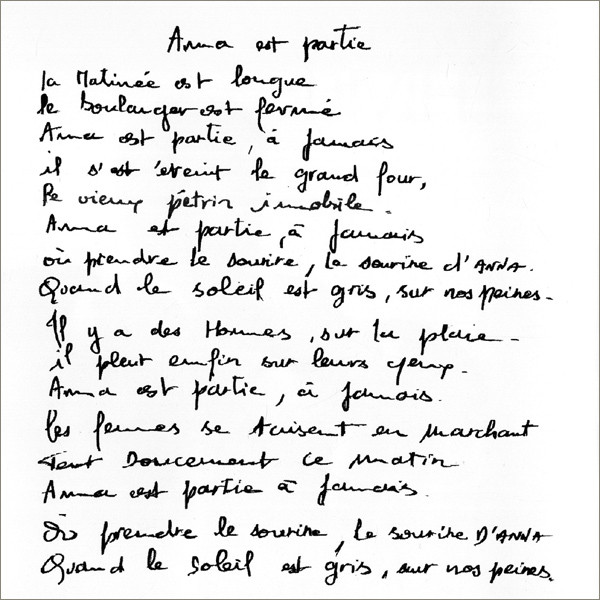 Anna est partie
la Matinée est longue
le boulanger est fermé
Anna est partie, à jamais
il s'est éteint le grand four,
le vieux pétrin immobile.
Anna est partie, à jamais
où prendre le sourire, le sourire d'ANNA.
Quand le soleil est gris, sur nos peines.
Il y a des Hommes, sur la place.
il pleut enfin sur leurs yeux.
Anna est partie, à jamais.
les femmes se taisent en marchant
Tout Doucement ce matin
Anna est partie à jamais.
Où prendre le sourire, le sourire D'ANNA
Quand le soleil est gris, sur nos peines.